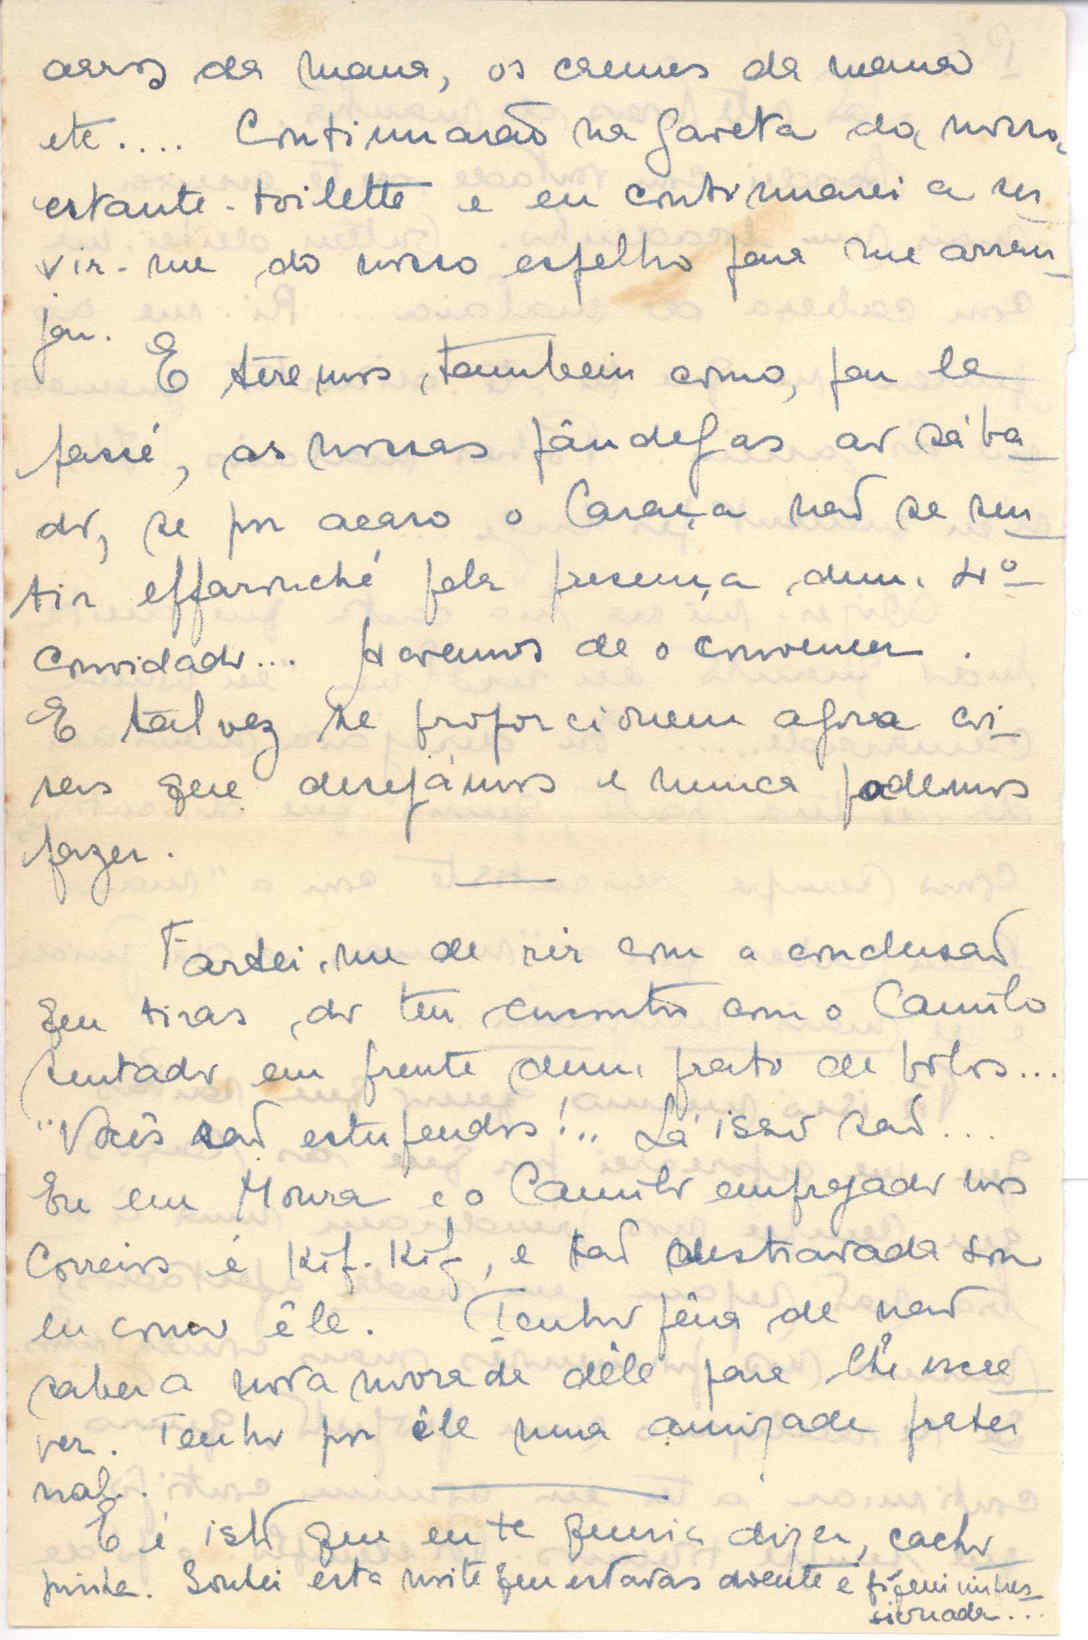 arroz da mana, os cremes da mana
etc.... Continuarão na gaveta da nossa
estante-toilette e eu continuarei a ser
vir-me do nosso espelho para me arran
jar.
E teremos, tambem como, par le
passé, as nossas pândegas ao sába
do, se por acaso o Caraça não se sen
tir effarouché pela presença dum 4º
convidado... Havemos de o convencer.
E talvez se proporcionem agora coi
sas que desejámos e nunca podemos
fazer.
Fartei-me de rir com a conclusão
que tiras do teu encontro com o Camilo
sentado em frente dum prato de bolos...
"Vocês são estupendos!" Lá isso são....
Eu em Moura e o Camilo empregado nos
Correios é Kif-Kif, e tão destravada sou
eu como êle. Tenho pena de não
saber a nova morada dêle para lhe escre
ver. Tenho por êle uma amizade frater
nal.
E é isto que eu te queria dizer, cacho
Sonhei esta noite que estavas doente e fiquei impres
sionada...